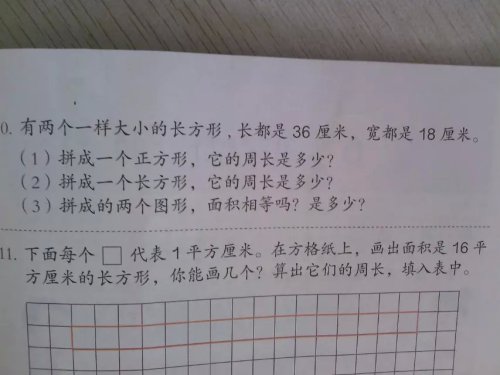 0. 有两个一样大小的长方形，长都是 36 厘米，宽都是 18 厘米。
（1）拼成一个正方形，它的周长是多少？
（2）拼成一个长方形，它的周长是多少？
（3）拼成的两个图形，面积相等吗？是多少？
11. 下面每个 □ 代表 1 平方厘米。在方格纸上，画出面积是 16 平
方厘米的长方形，你能画几个？算出它们的周长，填入表中。